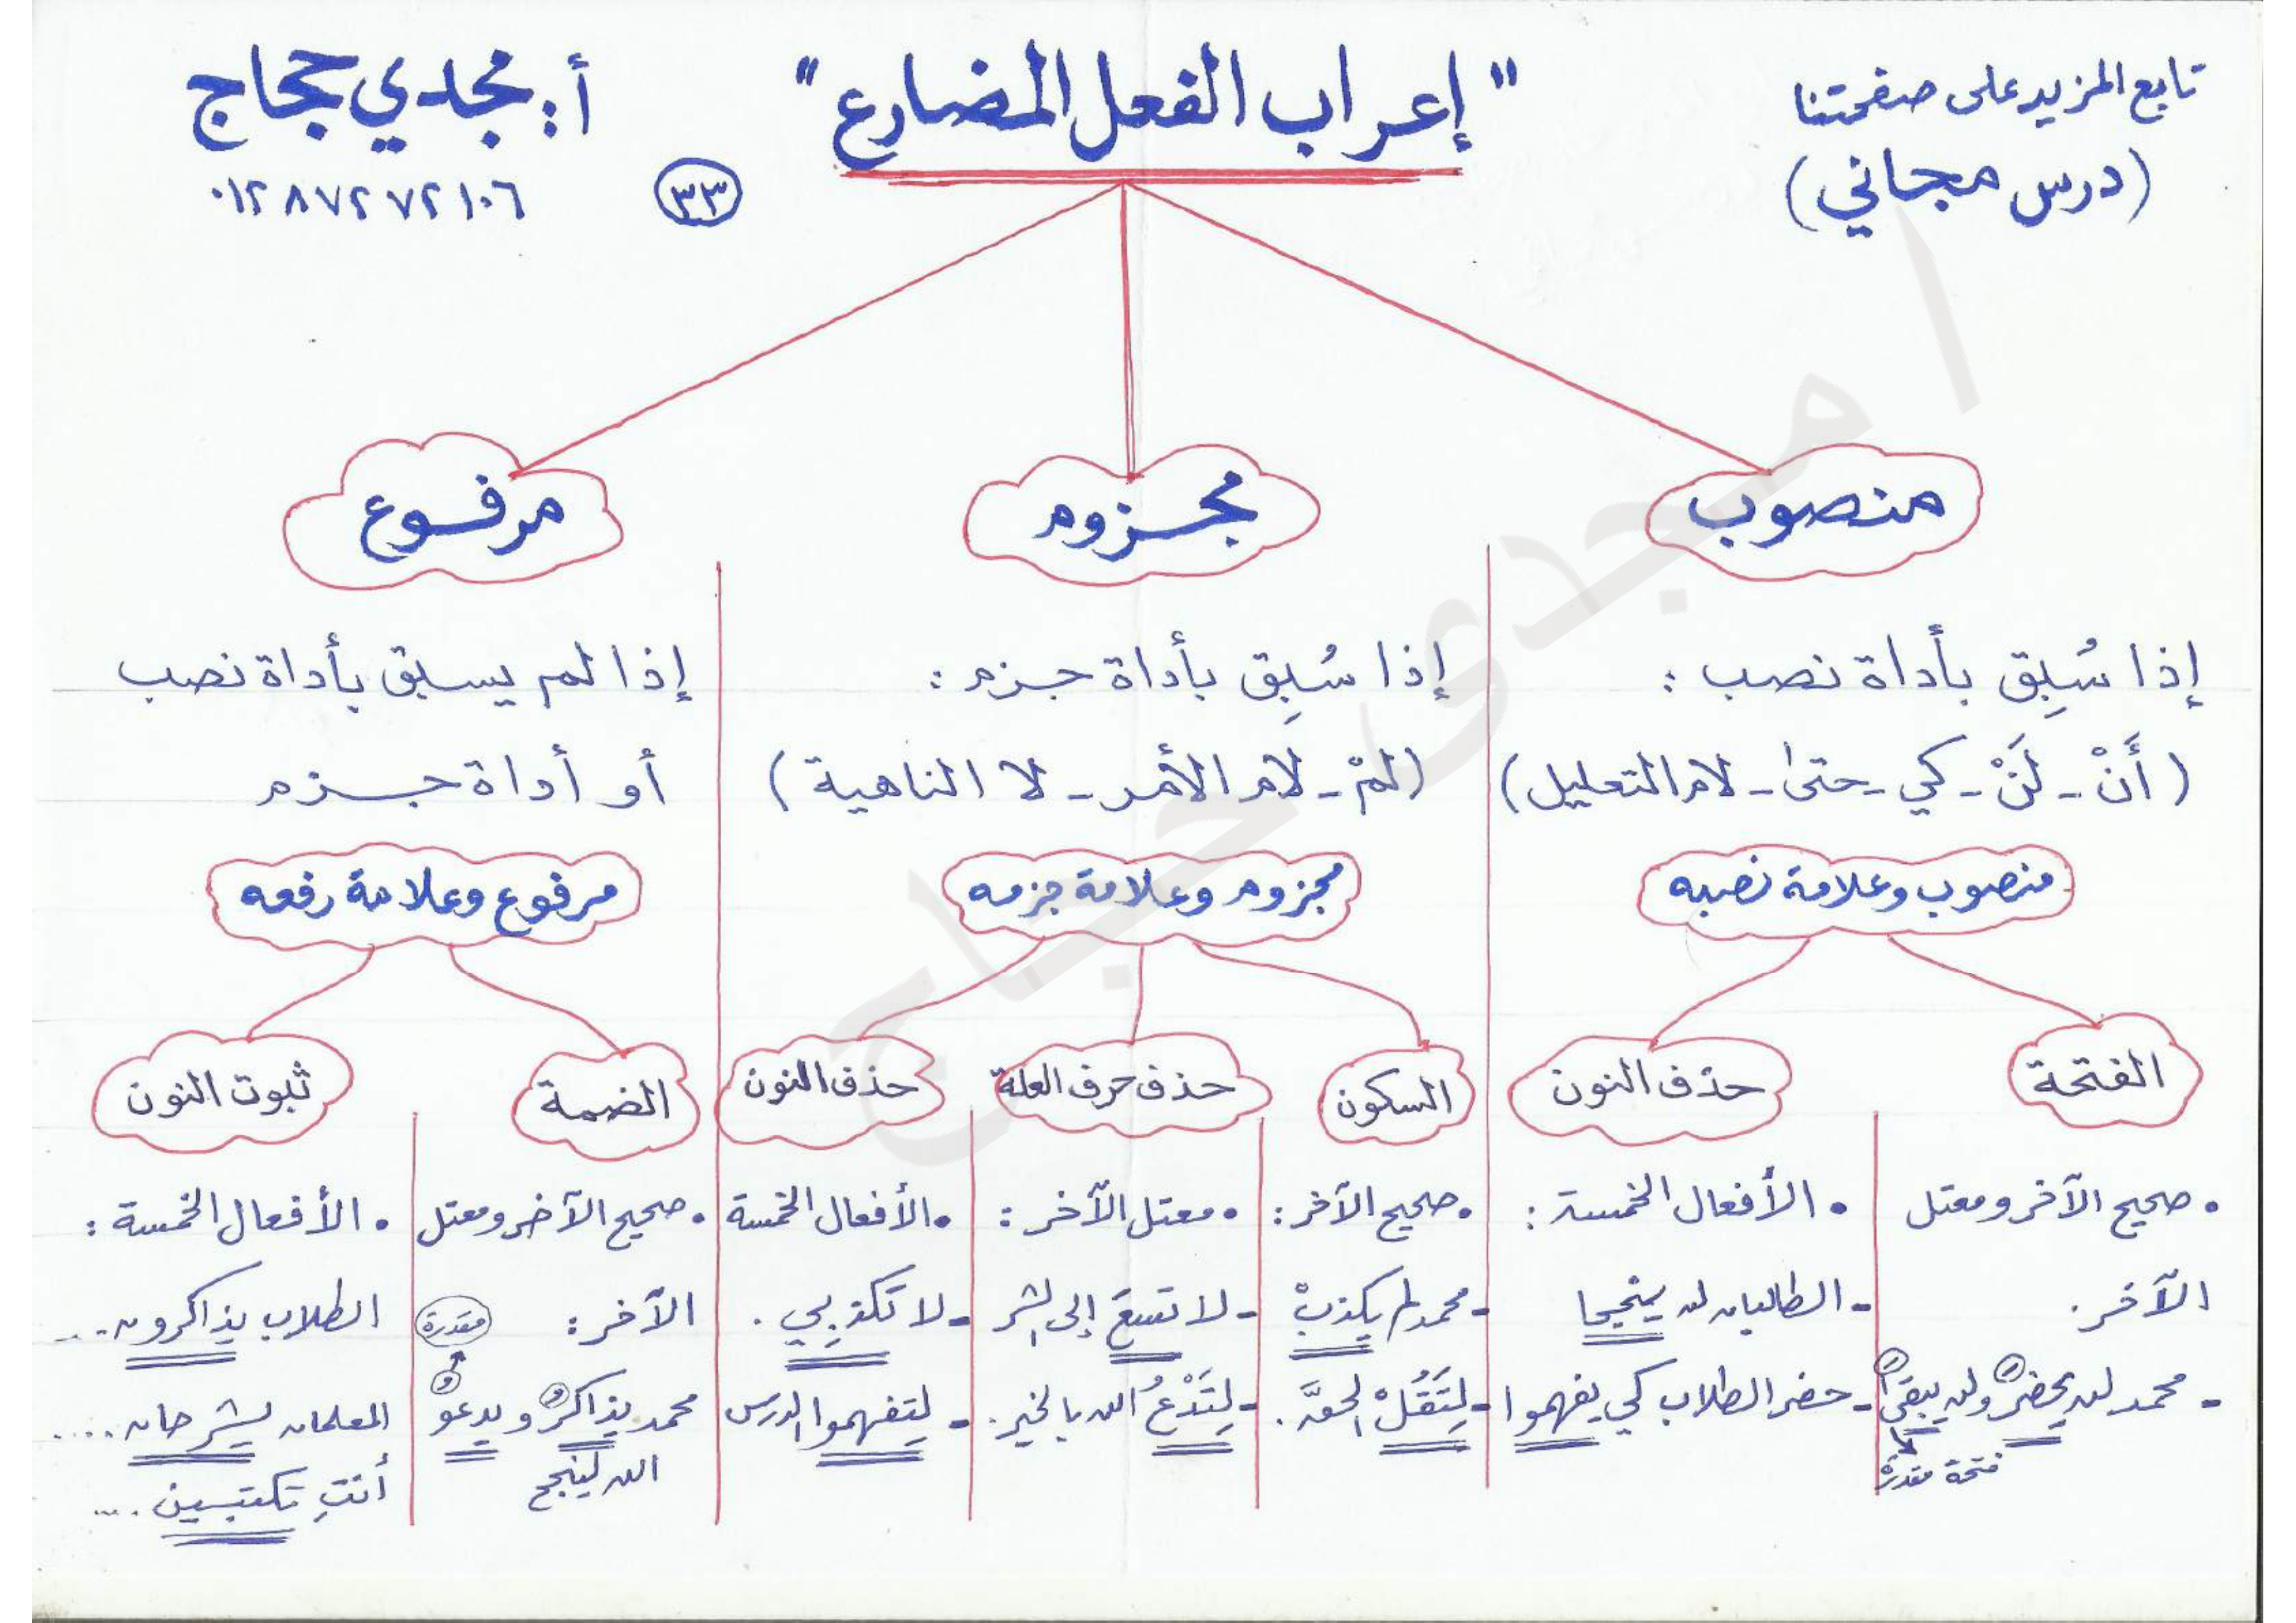 تابع المزيد على صفحتنا
(درس مجاني)
"إعراب الفعل المضارع"
٣٣
أ: مجدي حجاج
٠١٢٨٧٢٧٢١٠٦
منصوب
مجزوم
مرفوع
إذا سُبِق بأداة نصب:
(أَنْ - لَنْ - كي - حتى - لام التعليل)
إذا سُبِق بأداة جزم:
(لمْ - لام الأمر - لا الناهية)
إذا لم يسبق بأداة نصب
أو أداة جزم
منصوب وعلامة نصبه
مجزوم وعلامة جزمه
مرفوع وعلامة رفعه
الفتحة
حذف النون
السكون
حذف حرف العلة
حذف النون
الضمة
ثبوت النون
• صحيح الآخر ومعتل
الآخر.
- محمد لن يحضرَ ولن يبقى
فتحة مقدرة
• الأفعال الخمسة:
- الطالبان لن ينجحا
- حضر الطلاب كي يفهموا
• صحيح الآخر:
- محمد لم يكذبْ
- لِتَقُلْ الحقَّ.
• معتل الآخر:
- لا تسعَ إلى الشر
- لِتَدْعُ الله بالخير.
• الأفعال الخمسة
- لا تكذبي.
- لِتفهموا الدرس
• صحيح الآخر ومعتل
الآخر:
مقدرة
محمد يذاكرُ ويدعو
الله لينجح
• الأفعال الخمسة:
الطلاب يذاكرون...
المعلمان يشرحان....
أنتِ تكتبين...
ا/ مجدى حجاج